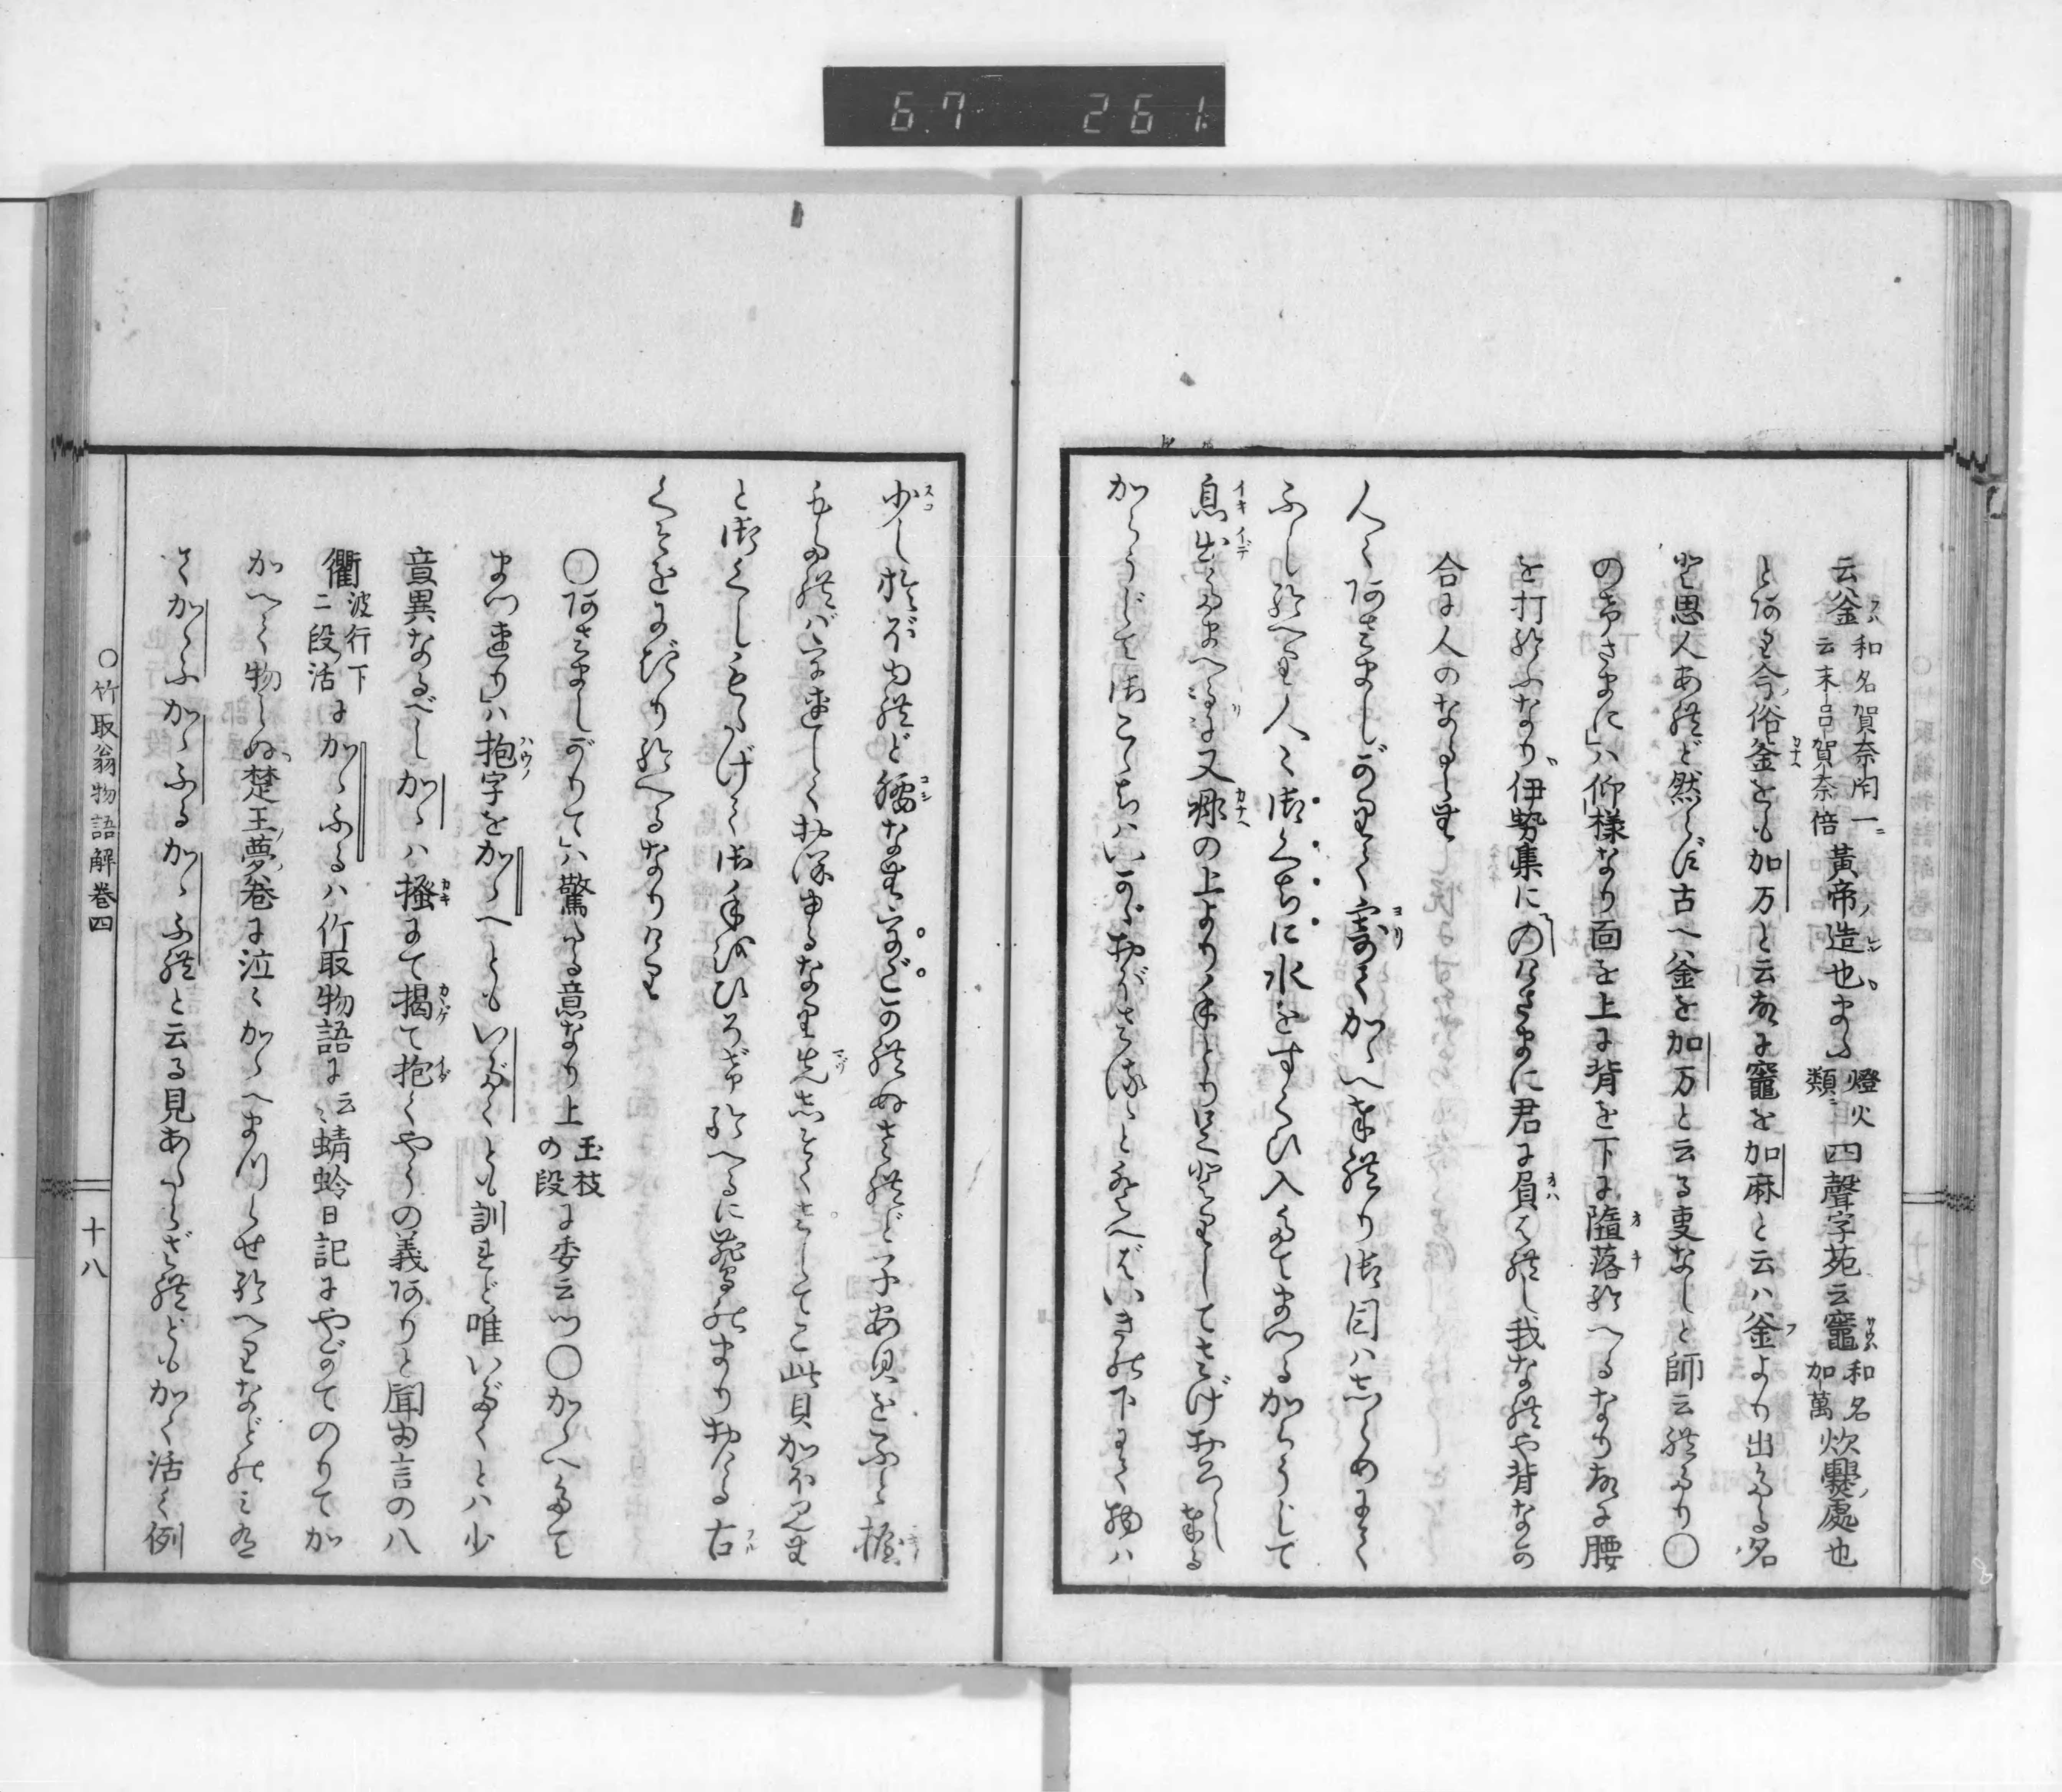 67 261
云釜和名賀奈閇一云末呂賀奈倍黃帝造也また燈火類四聲字苑云竈和名加萬炊爨處也
とあり今俗釜をも加万と云故に竈を加麻と云ハ釜より出たる名
と思人あれど然らず古へハ釜を加万と云る叓なしと師云れたり〇
のけさまに」ハ仰樣なり面を上に背を下に隨落給へるなり故に腰
を打給ふなり伊勢集にのけさまに君に負はれし我なれや背なか
合に人のなるらむ
人々あさましがりて寄てかゝへ奉れり御目ハしらめにて
ふし給へり人々御くちに水をすくひ入たてまつるからうして
息出たまへるに又鼎の上より手とり足とりしてさげおろし奉る
からうじて御こゝちハいかゞおぼさるゝととへばいきの下にて物ハ
少しおぼゆれど腰なむうごかれぬされど子安貝をふと握
もたれバうれしくおぼゆるなり先しそくさしてこ此貝かほ見む
と御くしもたげて御手をひろげ給へるに燕のまりおける古
くそをにぎり給へるなりけり
〇あさましがりて」ハ驚たる意なり上玉枝の段に委云つ〇かゝへたて
まつれり」ハ抱字をかゝへともいだくとも訓れど唯いだくとハ少
意異なるべしかゝハ搔にて揭て抱くやうの義ありと聞ゆ言の八
衢波行下二段活にかゝふるハ竹取物語に云々蜻蛉日記にやがてのりてか
かへて物しぬ楚王夢卷に泣々かゝへまつらせ給へりなどのミ有
てかゝふかゝふるかゝふれと云る見あたらざれどもかく活く例
〇竹取翁物語解卷四
十八